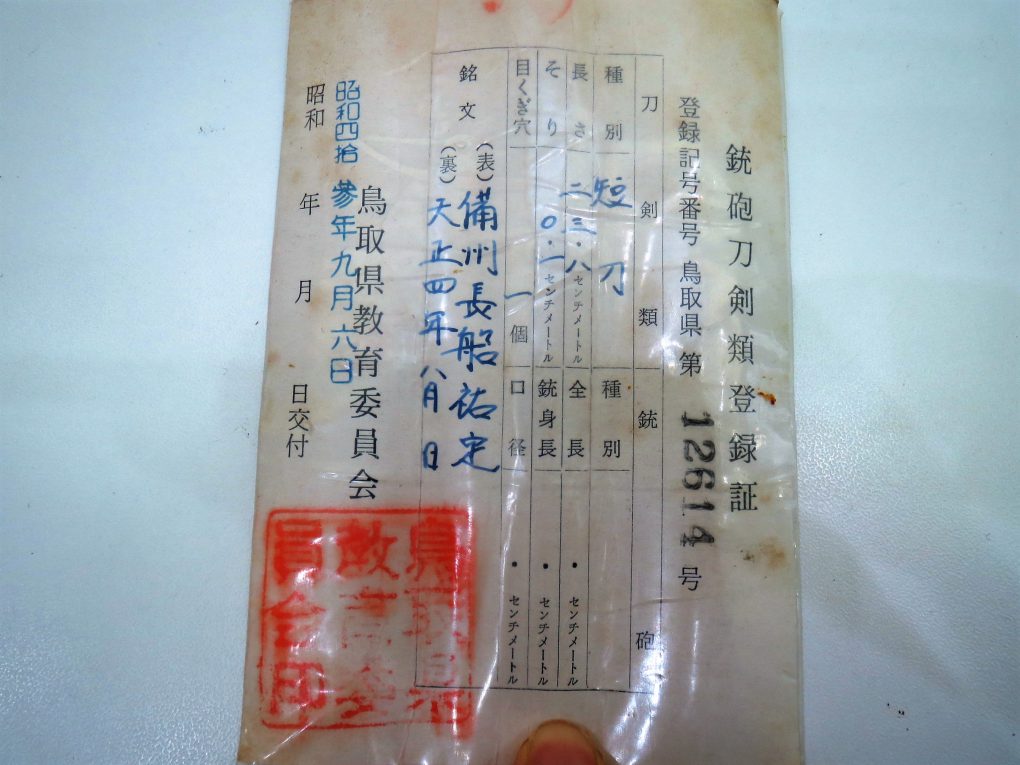 銃砲刀剣類登録証
登録記号番号 鳥取県 第 12614 号
刀剣類 銃砲
種別 短刀 種別
長さ 二三・八センチメートル 全長 ・センチメートル
そり 〇・一センチメートル 銃身長 ・センチメートル
目くぎ穴 一個 口径 ・センチメートル
銘文 (表) 備州長船祐定
(裏) 天正四年八月日
鳥取県教育委員会
昭和四拾参年九月六日
昭和 年 月 日交付
鳥取県
教育委
員会印